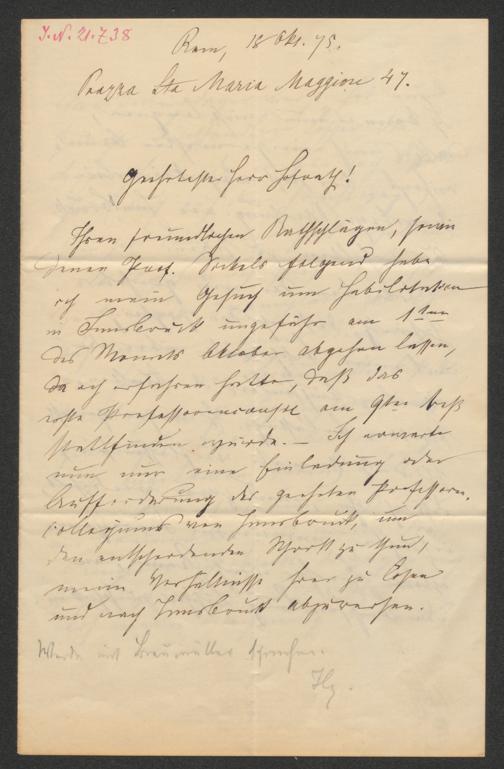 I.N. 21.738
Rom, 18 Okt. 75.
Piazza Sta Maria Maggiore 47.
Geehrtester Herr Hofrath!
Ihren freundlichen Rathschlägen, sowie
denen Prof. Sickels folgend habe
ich mein Gesuch um Habilitation
in Innsbruck ungefähr am 1ten
des Monats Oktober abgehen lassen,
da ich erfahren hatte, daß das
erste Professoren am 9ten
stattfinden würde. – Ich erwarte
nun nur eine Einladung oder
Aufforderung des geehrten Professoren-
collegiums von Innsbruck, um
den entscheidenden Schritt zu thun,
meine Verhältnisse hier zu lösen
und nach Innsbruck abzureisen.
Werde mit Braumüller sprechen.